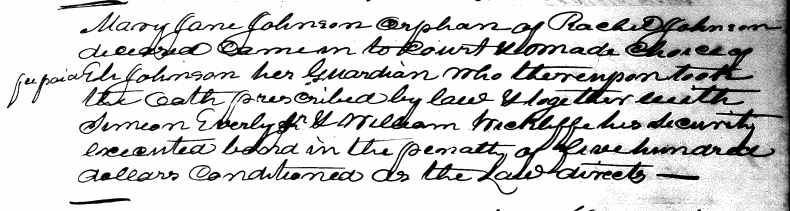 Mary Jane Johnson orphan of Rachel Johnson
deceased Came in to Court & made Choice of
fee paid Eli Johnson her Guardian who thereupon took
the oath prescribed by law & together with
Simeon Everly Jr & William Wickliffe his security
executed bond in the penalty of five hundred
dollars Conditioned as the Law directs —